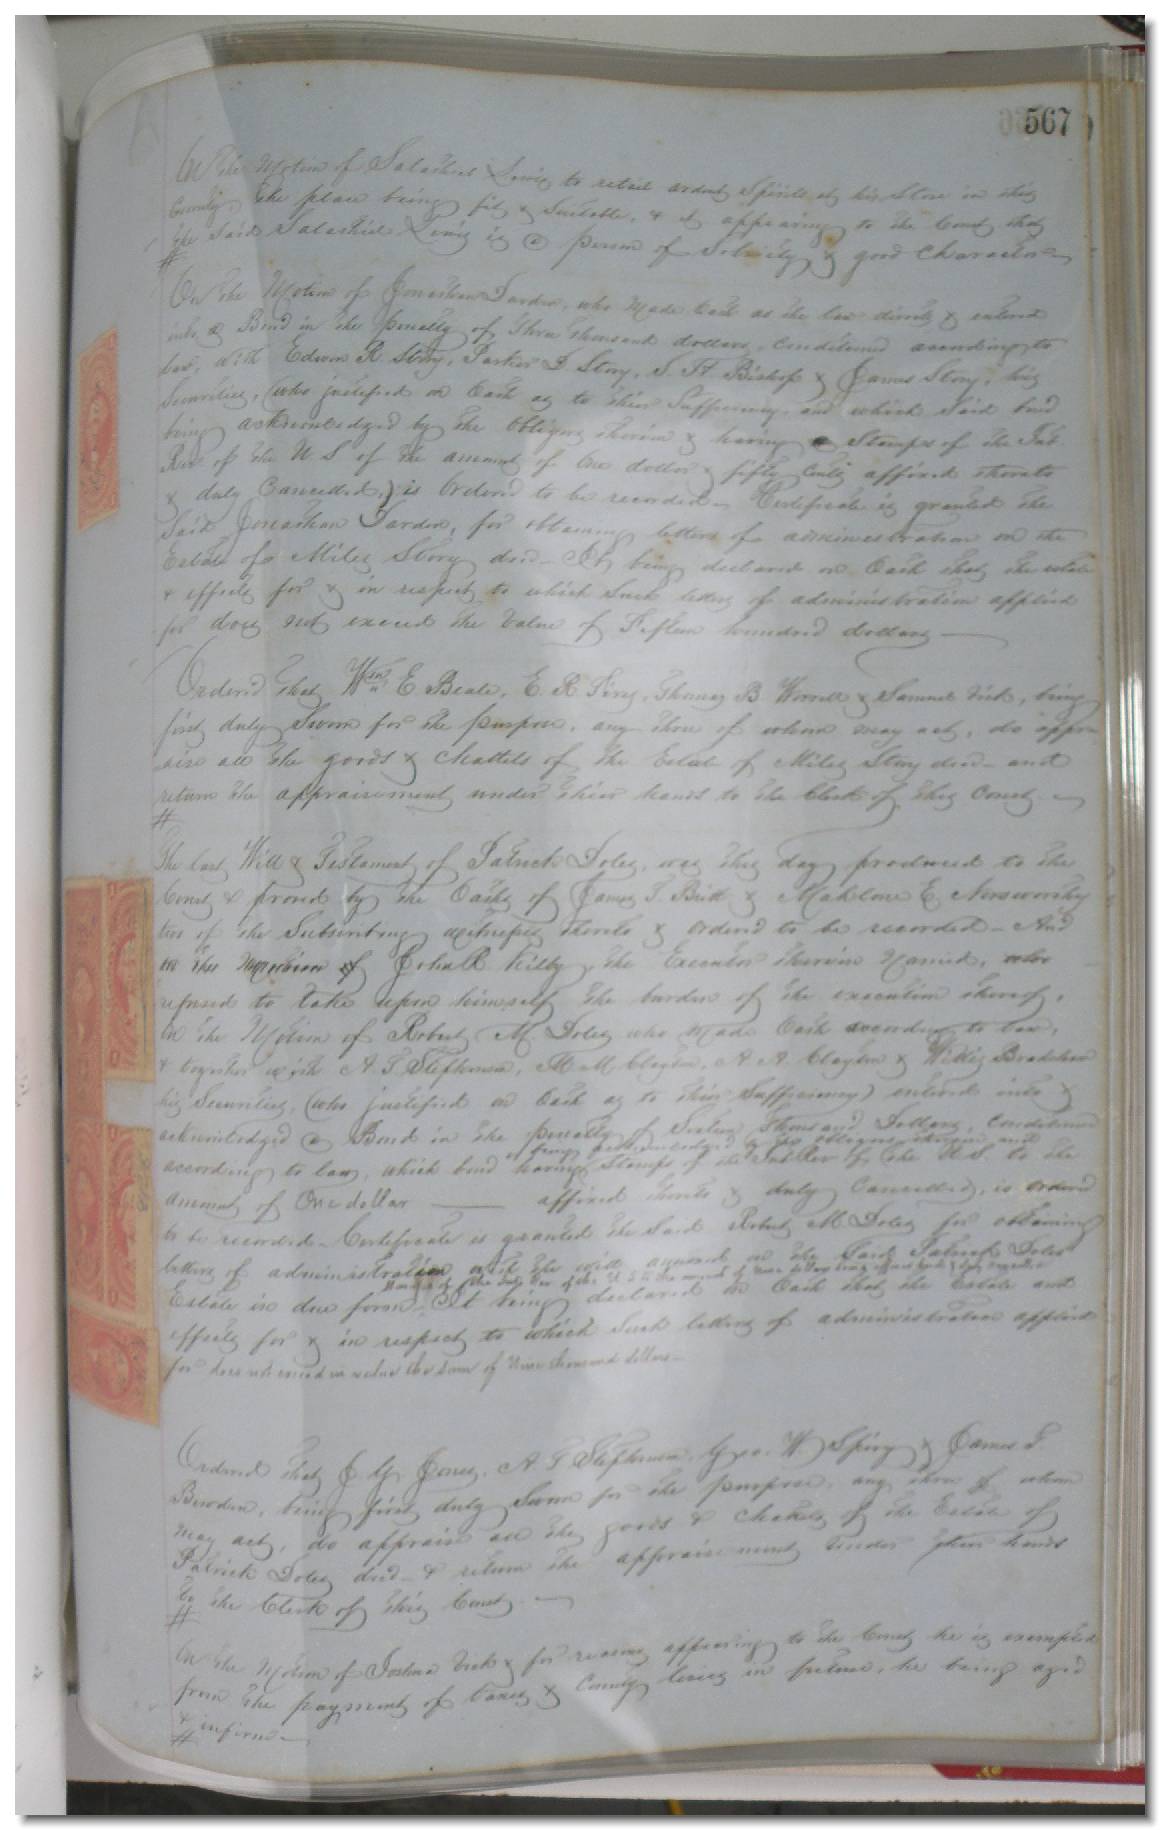 567
On the Motion of Salathiel Lewis to retail ardent Spirits at his Store in this
County, the place being fit & Suitable, & it appearing to the Court that
the Said Salathiel Lewis is a person of Sobriety & good Character
On the Motion of Jonathan Darden, who made Oath as the law directs & entered
into a Bond in the penalty of Three thousand dollars, conditioned according to
law, with Edwin R Story, Parker D Story, S. H. Bishop & James Story, his
Securities, (who justified on Oath as to their Sufficiency, and which Said bond
being acknowledged by the Obligors therein & having Stamps of the Int.
Rev. of the U. S of the amount of One dollar & fifty Cents affixed thereto
& duly Cancelled,) is Ordered to be recorded - Certificate is granted the
Said Jonathan Darden, for obtaining letters of administration on the
Estate of Miles Story decd - It being declared on Oath that the estate
& effects for & in respect to which Such letters of administration applied
for does not exceed the Value of Fifteen hundred dollars
Ordered that Wm E Beale, E. R. Thomas B. Worrell & Samuel Vick, being
first duly Sworn for the purpose, any three of whom may act, do appra-
aise all the goods & chattels of the Estate of Miles Story decd - and
return the appraisement under their hands to the Clerk of this Court
The last Will & Testament of Patrick Doles, was this day produced to the
Court & proved by the Oaths of James T. Britt & E. Norsworthy
two of the Subscribing witnesses thereto & ordered to be recorded - And
on the of John R Kilby, the Executor therein Named, who
refused to take upon himself the burden of the execution thereof,
on the Motion of Robert M. Doles who made Oath according to law,
& together with A T Stephenson, M Clayton, A A. Clayton & Willis Bradshaw
his Securities, (who justified on Oath as to their Sufficiency) entered into &
acknowledged a Bond in the penalty of Sixteen Thousand Dollars, conditioned
being acknowledged by the obligors therein and
according to law, which bond having Stamps of the Int Rev of the U.S. to the
amount of One dollar affixed thereto & duly Cancelled, is ordered
to be recorded - Certificate is granted the Said Robert M Doles for obtaining
letters of administration with the will annexed on the Said Patrick Doles
Stamps of the Int Rev of the U S to the amount of dollars being affixed
Estate in due form - It being declared on Oath that the Estate and
effects for & in respect to which Such letters of administration applied
for does not exceed in value the sum of Nine thousand dollars -
Ordered that J. G. Jones, A. T Stephenson, Geo. W. Spivy & James T.
Burden, being first duly Sworn for the purpose, any three of whom
May act, do appraise all the goods & chattels of the Estate of
Patrick Doles decd - & return the appraisement under their hands
to the Clerk of this Court
On the Motion of Joshua Vick & for reasons appearing to the Court he is exempted
from the payment of taxes & County levies in future, he being aged
& infirm